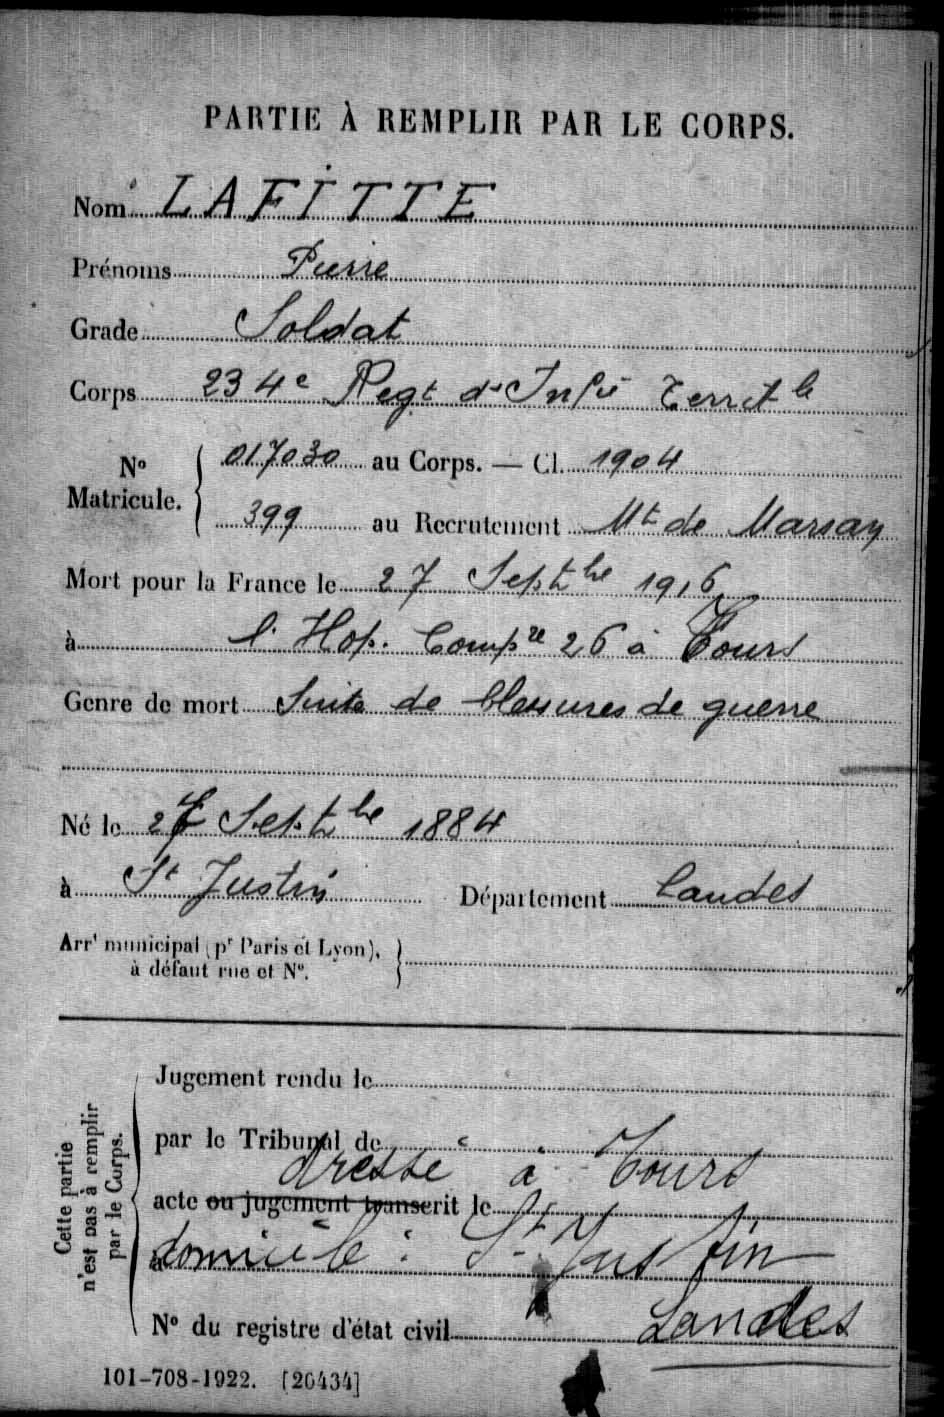 PARTIE À REMPLIR PAR LE CORPS.
Nom LAFITTE
Prénoms Pierre
Grade Soldat
Corps 234e Regt d'Infie Territle
No Matricule. 017030 au Corps. — Cl. 1904
399 au Recrutement Mt de Marsan
Mort pour la France le 27 Septbre 1916
à l'Hop. Compre 26 à Tours
Genre de mort Suite de blessures de guerre
Né le 27 Septbre 1884
à St Justin Département Landes
Arrt municipal (pr Paris et Lyon), à défaut rue et No.
Cette partie n'est pas à remplir par le Corps.
Jugement rendu le
par le Tribunal de
dressé à Tours
acte ou jugement transcrit le
à domicile : St Justin
Landes
No du registre d'état civil
101-708-1922. [26434]